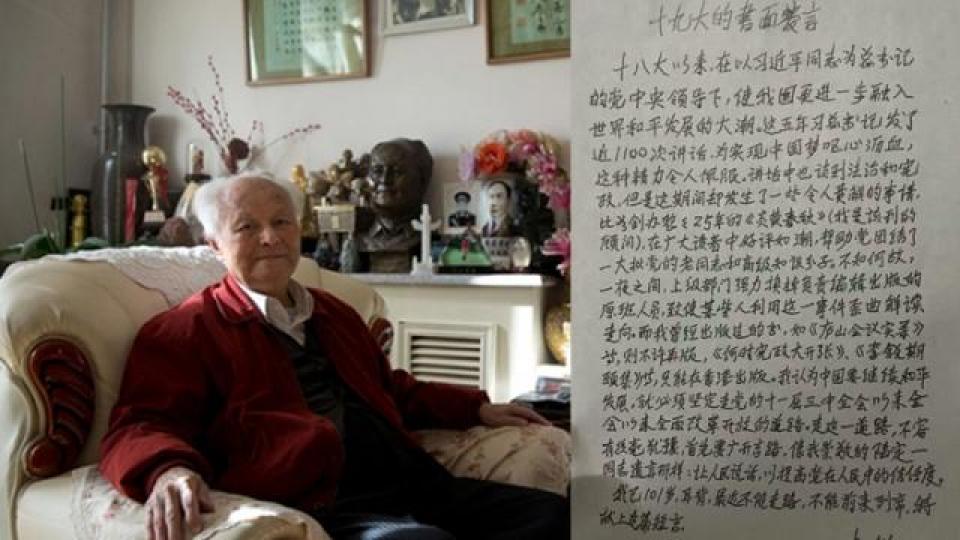 十九大的书面发言
十八大以来,在以习近平同志为总书记
的党中央领导下,使我国更进一步融入
世界和平发展的大潮。这五年习总书记发了
近1100次讲话,为实现中国梦呕心沥血,
这种精力令人佩服。讲话中也谈到法治和宪
政,但是这期间却发生了一些令人费解的事情,
比如创办整25年的《炎黄春秋》(我是该刊的
顾问),在广大读者中好评如潮,帮助党团结了
一大批党的老同志和高级知识分子。不知何故,
一夜之间,上级部门强力换掉负责编辑出版的
原班人员,致使某些人利用这一事件歪曲解读
走向。而我曾经出版过的书,如《庐山会议实录》
等,则不许再版,《何时宪政大开张》、《李锐期
颐集》等,只能在香港出版。我认为中国要继续和平
发展,就必须坚定走党的十一届三中全会以来全
会以来全面改革开放的道路。走这一道路,不容
有丝毫犹豫,首先要广开言路,像我崇敬的陆定一
同志遗言那样:让人民说话,以提高党在人民中的信任度。
我已101岁,耳聋,最近不能走路,不能前来列席,特
献上这篇短言。